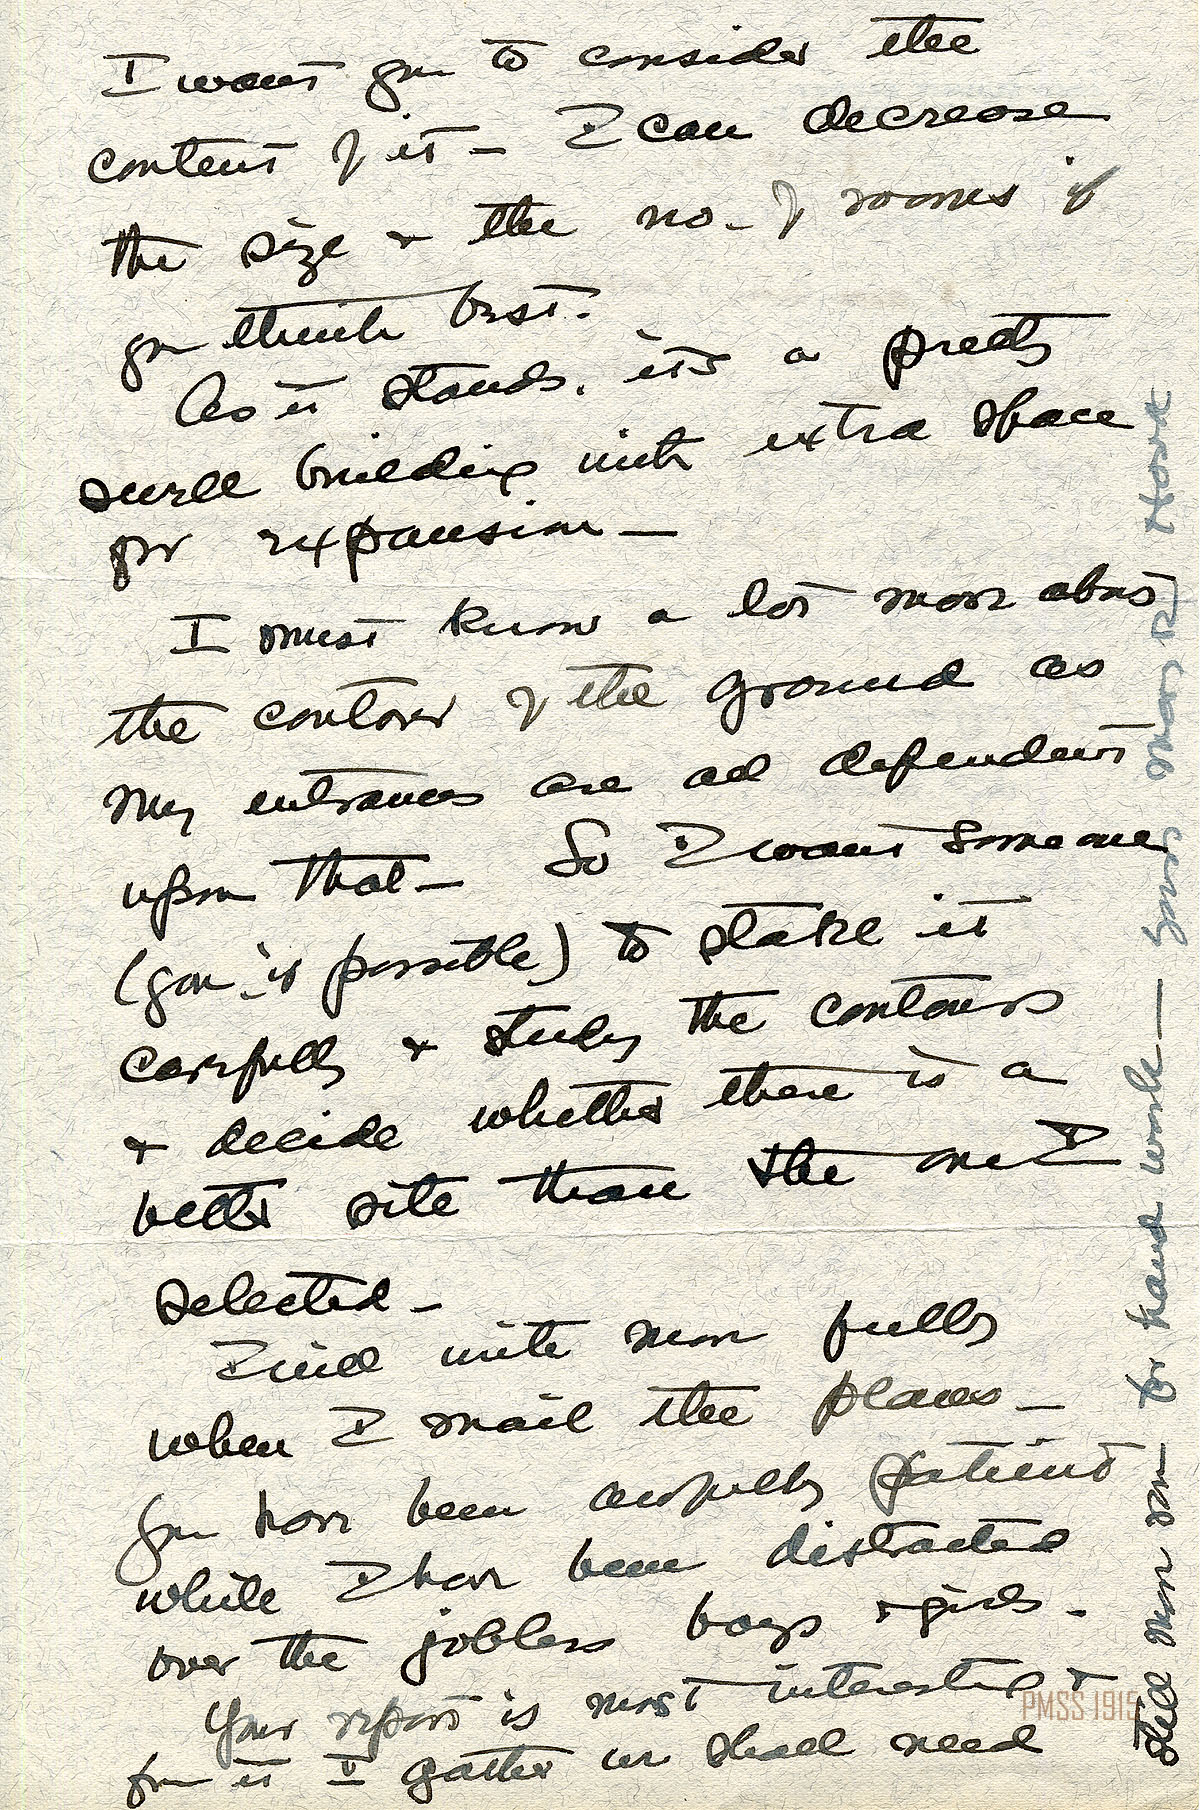 I want you to consider the
content of it - I can decrease
the size + the no. of rooms if
you think best.
As it stands, it's a pretty
small building with extra space
for expansion —
I must know a lot more about
the contour of the ground as
my entrances are all dependent
upon that — So I want someone
(you if possible) to stake it
carefully + study the contours
+ decide whether there is a
better site than the one I
selected —
I will write more fully
when I mail the plans —
You have been awfully patient
while I have been distracted
over the jobless boys + girls.
Your report is most interesting +
from it I gather we shall need
still more room for hand work — Yours Mary R Hook
PMSS 1915